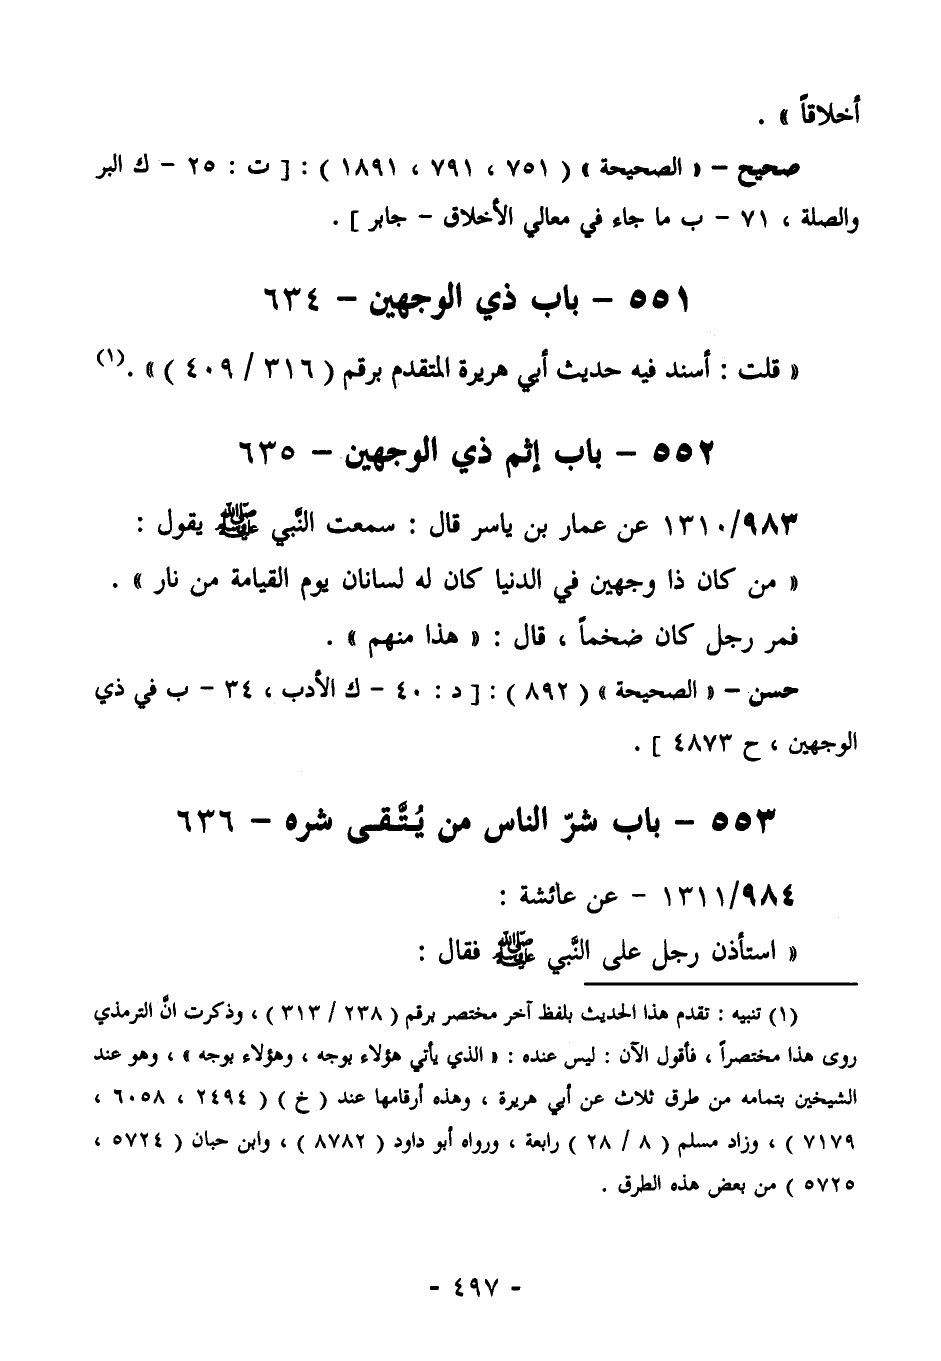 أخلاقاً » .
صحيح – « الصحيحة » ( ٧٥١ ، ٧٩١ ، ١٨٩١ ) : [ ت : ٢٥ – ك البر
والصلة ، ٧١ – ب ما جاء في معالي الأخلاق – جابر ] .
٥٥١ – باب ذي الوجهين – ٦٣٤
« قلت : أسند فيه حديث أبي هريرة المتقدم برقم ( ٣١٦ / ٤٠٩ ) » .(١)
٥٥٢ – باب إثم ذي الوجهين – ٦٣٥
١٣١٠/٩٨٣ عن عمار بن ياسر قال : سمعت النَّبي ﷺ يقول :
« من كان ذا وجهين في الدنيا كان له لسانان يوم القيامة من نار » .
فمر رجل كان ضخماً ، قال : « هذا منهم » .
حسن – « الصحيحة » ( ٨٩٢ ) : [ د : ٤٠ – ك الأدب ، ٣٤ – ب في ذي
الوجهين ، ح ٤٨٧٣ ] .
٥٥٣ – باب شرّ الناس من يُتَّقى شره – ٦٣٦
١٣١١/٩٨٤ – عن عائشة :
« استأذن رجل على النَّبي ﷺ فقال :
(١) تنبيه : تقدم هذا الحديث بلفظ آخر مختصر برقم ( ٢٣٨ / ٣١٣ ) ، وذكرت انَّ الترمذي
روى هذا مختصراً ، فأقول الآن : ليس عنده : « الذي يأتي هؤلاء بوجه ، وهؤلاء بوجه » ، وهو عند
الشيخين بتمامه من طرق ثلاث عن أبي هريرة ، وهذه أرقامها عند ( خ ) ( ٢٤٩٤ ، ٦٠٥٨ ،
٧١٧٩ ) ، وزاد مسلم ( ٨ / ٢٨ ) رابعة ، ورواه أبو داود ( ٨٧٨٢ ) ، وابن حبان ( ٥٧٢٤ ،
٥٧٢٥ ) من بعض هذه الطرق .
- ٤٩٧ -